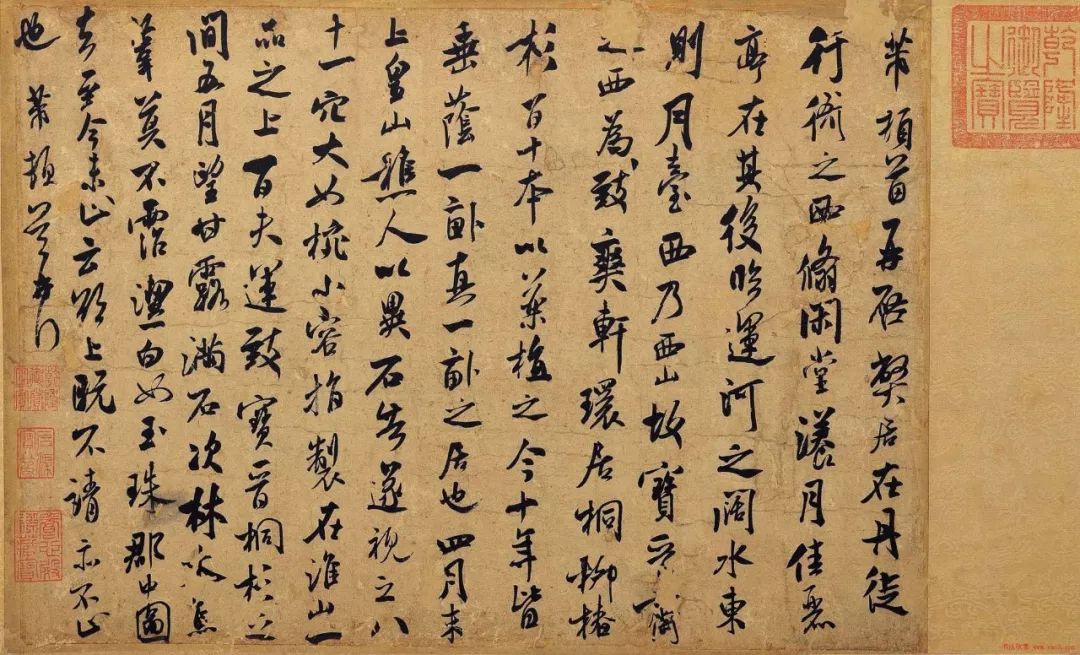 乾隆御覽之寶
芾頓首再啓弊居在丹徒
行衙之西翛閑堂漾月佳麗
亭在其後臨運河之闊水東
則月臺西乃西山故寶晉齋
之西為致爽軒環居桐柳椿
杉百十本以藥植之今十年皆
垂蔭一畝真一畝之居也四月末
上皇山樵人以異石告遂視之八
十一穴大如椀小容指製在淮山一
品之上百夫運致寶晉桐杉之
間五月望甘露滿石次林木焦
葦莫不霑潔白如玉珠郡中圖
去至今未止云欲上既不請亦不止
也 芾頓首再拜